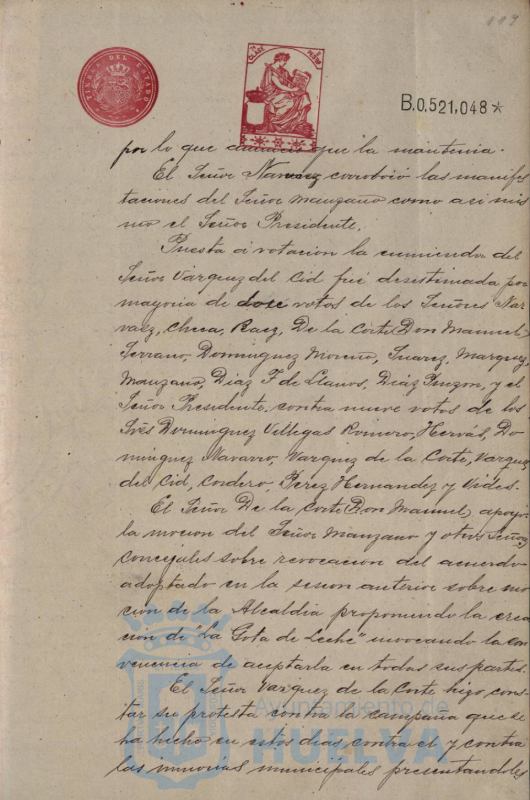 119
TIMBRE DEL ESTADO
B.0,521,048*
por lo que anuncio que la mantenia.
El Señor Narvaez corroboró las manifes
taciones del Señor Manzano como asi mis
mo el Señor Presidente.
Puesta a votación la enmienda del
Señor Vazquez del Cid fué desestimada por
mayoria de doce votos de los Señores Nar
vaez, Checa, Raez, De la Corte Don Manuel,
Serrano, Dominguez Moreno, Suarez, Marquez,
Manzano, Diaz F de Llanos, Diaz Pinzon, y el
Señor Presidente, contra nueve votos de los
Srēs Dominguez Villegas Romero, Hervás, Do
minguez Navarro, Vazquez de la Corte, Vazquez
del Cid, Cordero, Perez Hernandez y Vides.
El Señor De la Corte Don Manuel, apoyó
la mocion del Señor Manzano y otros Señores
Concejales sobre revocacion del acuerdo
adoptado en la sesion anterior sobre mo
cion de la Alcaldia proponiendo la crea
ción de "La Gota de Leche" invocando la con
veniencia de aceptarla en todas sus partes.
El Señor Vazquez de la Corte hizo cons
tar su protesta contra la campaña que se
ha hecho en estos dias contra el y contra
las minorias municipales presentandoles
Ayuntamiento de
HUELVA